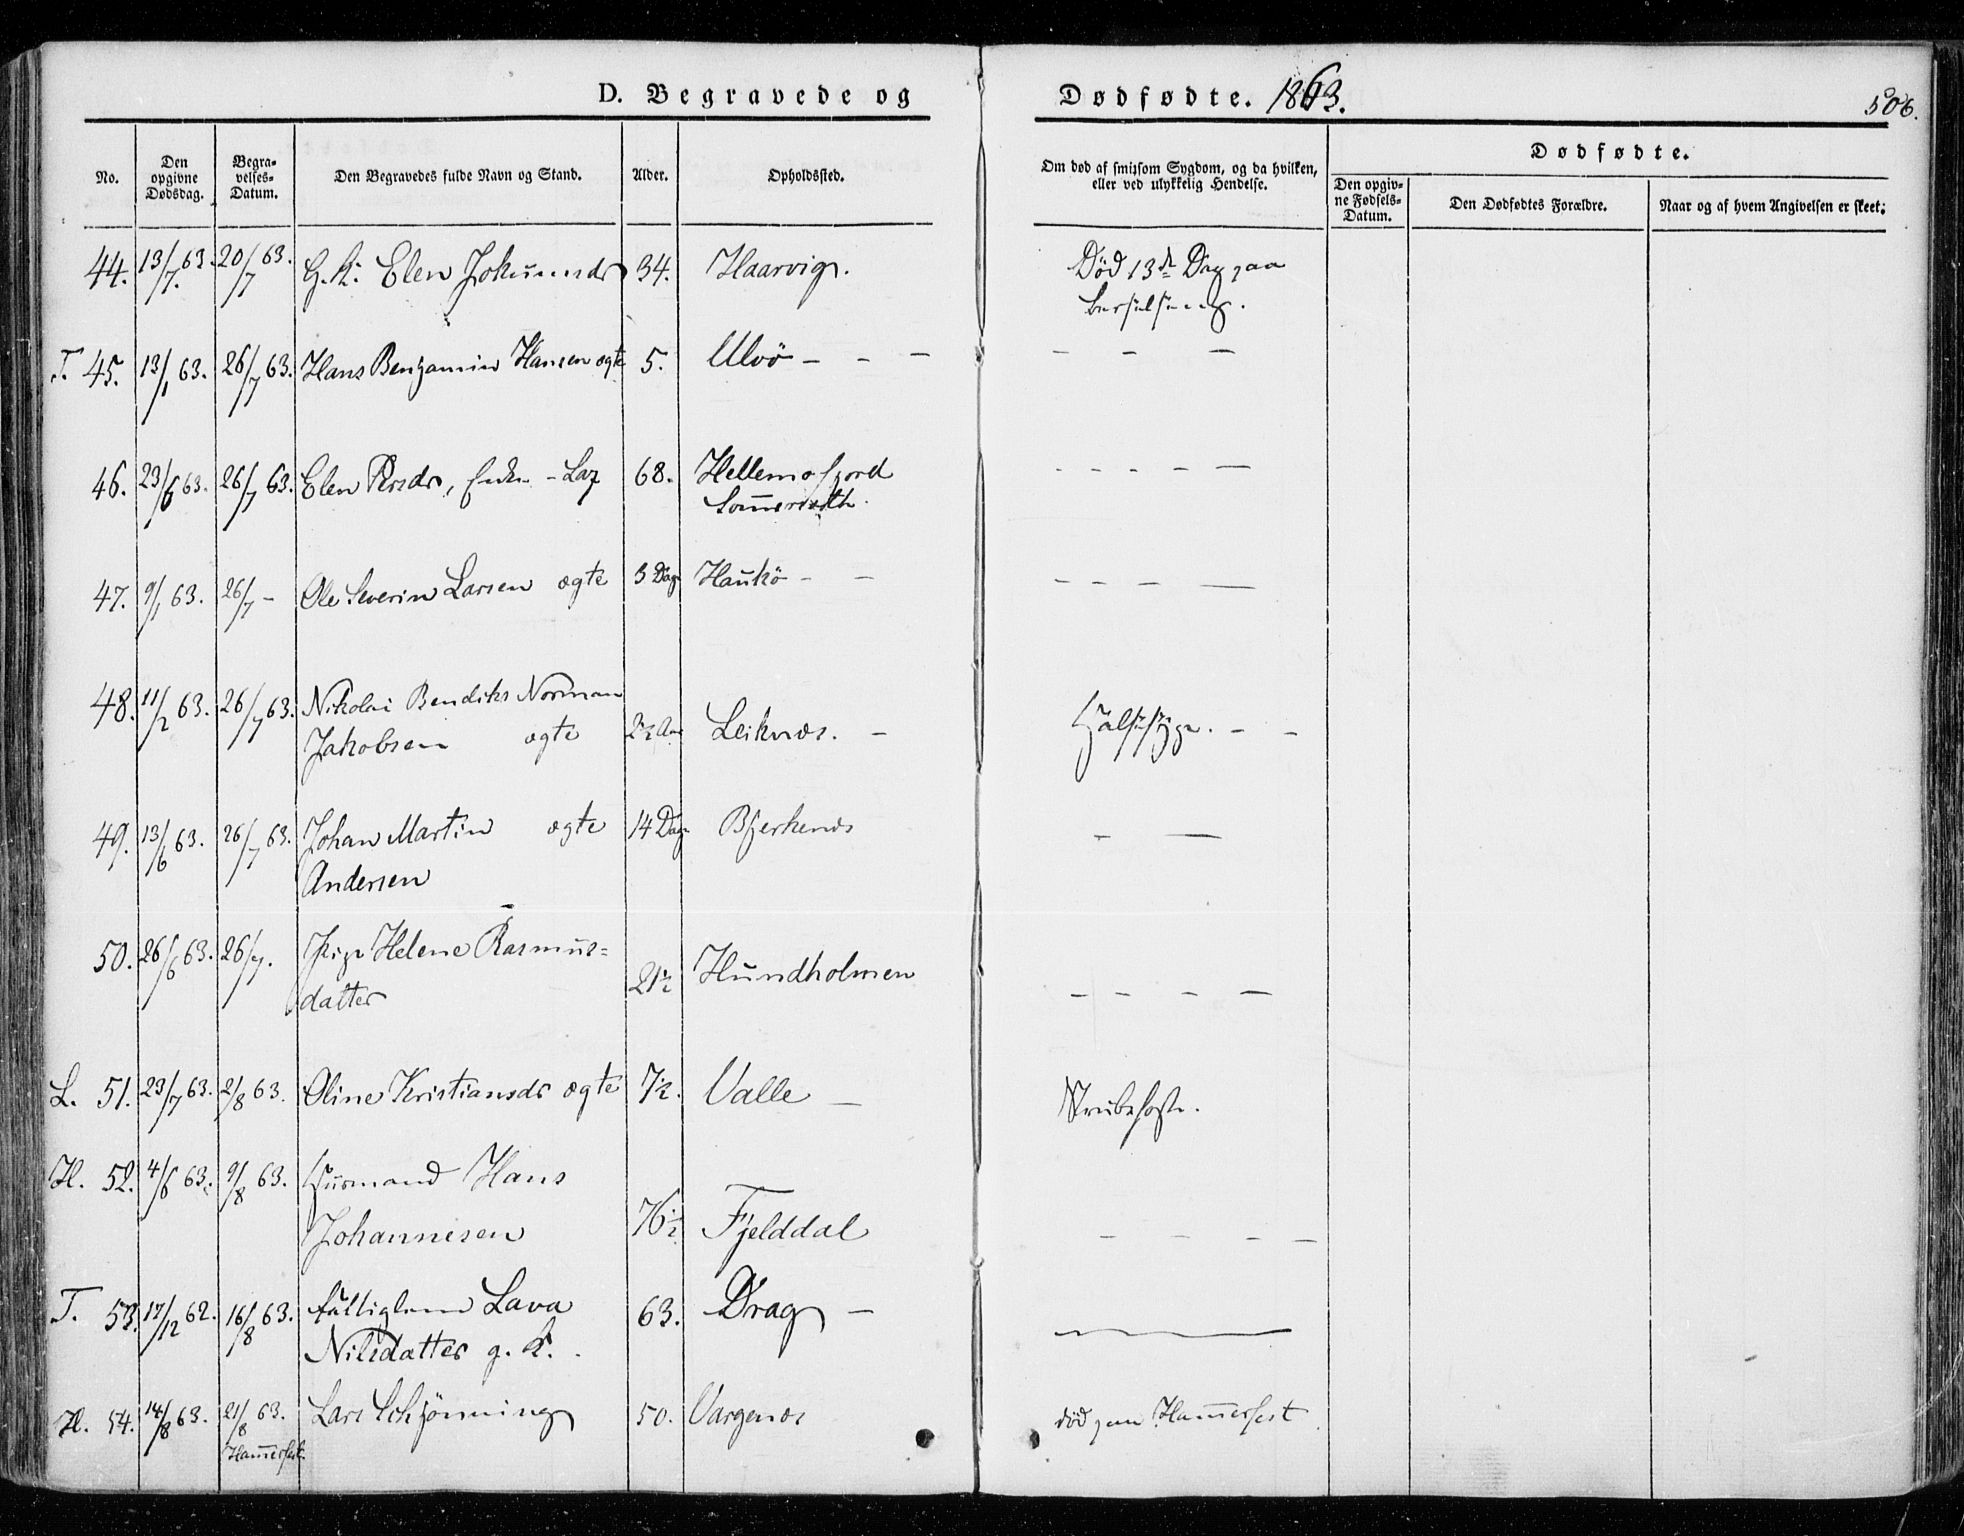 D. Begravede og Dødfødte. 1863.
506.
No.
Den opgivne Dødsdag.
Begravelses-Datum.
Den Begravedes fulde Navn og Stand.
Alder.
Opholdssted.
Om død af smitsom Sygdom, og da hvilken, eller ved ulykkelig Hendelse.
Dødfødte.
Den opgivne Fødsels-Datum.
Den Dødfødtes Forældre.
Naar og af hvem Angivelsen er skeet.
44. 13/7 63. 20/7 63. G. K. Elen Jokumsdr 34. Haarvig. Død 13de Dag paa
Barselseng.
T. 45. 13/1 63. 26/7 63. Hans Benjamin Hansen ægte 5. Ulvö - - - - - -
46. 23/6 63. 26/7 63. Elen Persdr, Enke - Lap 68. Hellemofjord - - - - -
47. 9/1 63. 26/7 - Ole Severin Larsen ægte 3 Dage Haukö - - - - - -
48. 11/2 63. 26/7 63. Nikolai Bendiks Norman
Jakobsen ægte 2½ Aar Leiknæs. - Halssyge. - -
49. 13/6 63. 26/7 63. Johan Martin ægte 14 Dage Bjerkenæs - -
Andersen
50. 26/6 63. 26/7. Pige Helene Rasmus-
datter 21½ Hundholmen - - - -
L. 51. 23/7 63. 2/8 63. Oline Kristiansdr ægte 7½. Valle - Strubehoste.
H. 52. 4/6 63. 9/8 63. Huusmand Hans
Johannesen 76½ Fjelddal - - - -
T. 53. 17/12 62. 16/8 63. Fattiglem Lava 63. Drag -
Nilsdatter g. K.
H. 54. 14/8 63. 21/8 63. Lars Schjønning 50. Vargenæs død paa Hammerfest
Hammerfest